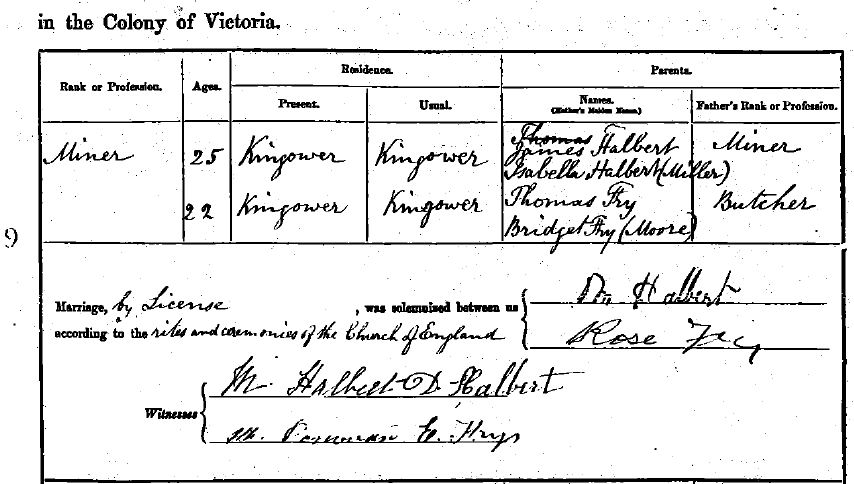 in the Colony of Victoria.
Rank or Profession. Ages. Residence. Parents.
Present. Usual. Names. (Mother's Maiden Name.) Father's Rank or Profession.
Thomas
Miner 25 Kingower Kingower James Halbert Miner
Isabella Halbert (Miller)
22 Kingower Kingower Thomas Fry Butcher
Bridget Fry (Moore)
9
Marriage, by License, was solemnized between us Halbert
according to the rites and ceremonies of the Church of England Rose Fry
M. Halbert D Halbert
Witnesses
E. Frys